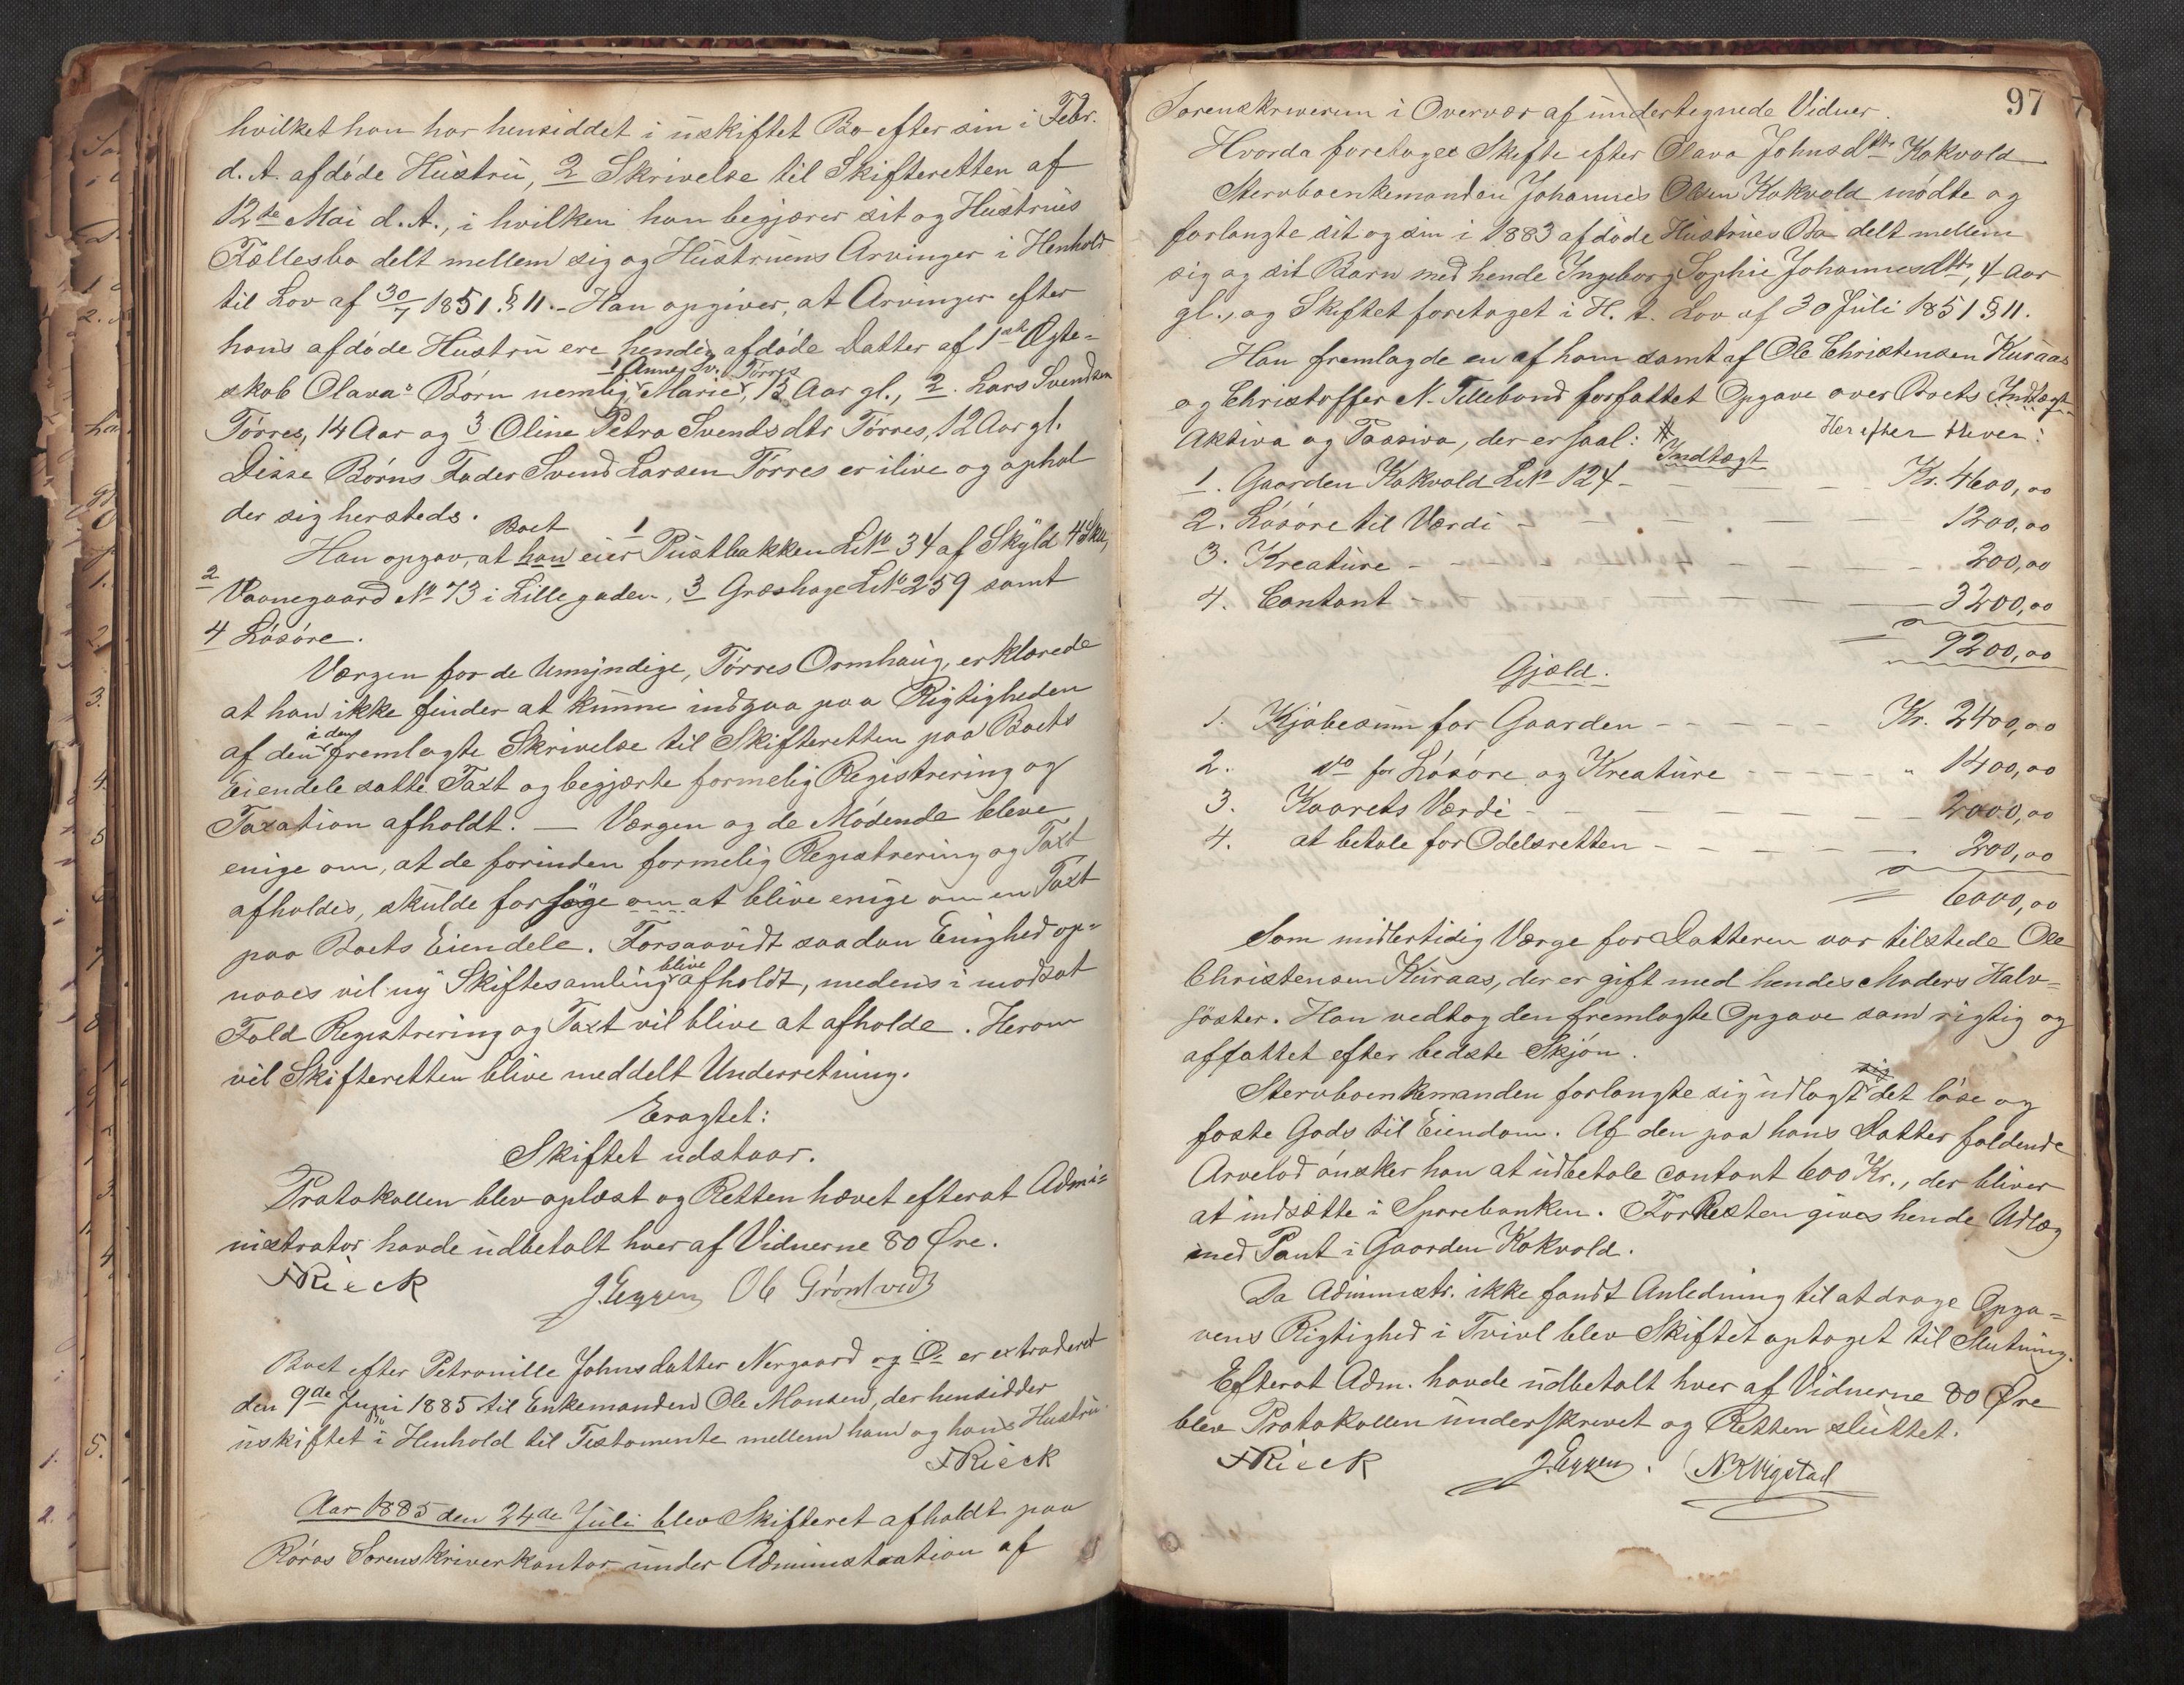 hvilket han har hensiddet i uskiftet Bo efter sin i Febr.
d. A. afdøde Hustru, 2 Skrivelse til Skifteretten af
12te Mai d. A., i hvilken han begjærer sit og Hustrues
Fællesbo delt mellem sig og Hustruens Arvinger i Henhold
til Lov af 30/7 1851 § 11. - Han opgiver, at Arvinger efter
hans afdøde Hustru ere hendes afdøde Datter af 1ste Ægte-
skab Olava's Børn nemlig 1 Anne Marie Sv. Tørres, 13 Aar gl., 2. Lars Svendsen
Tørres, 14 Aar og 3 Oline Petra Svendsdtr Tørres, 12 Aar gl.
Disse Børns Fader Svend Larsen Tørres er ilive og ophol
der sig hersteds.
Han opgav, at han Boet eier 1 Pustbakken LNo 34 af Skyld 4 Sk.,
2 Vaanegaard No 73 i Lillegaden, 3 Græshage LNo 259 samt
4 Løsøre.
Værgen for de Umyndige, Tørres Ormhaug, erklærede
at han ikke finder at kunne indgaa paa Rigtigheden
af den i den fremlagte Skrivelse til Skifteretten paa Boets
Eiendele satte Taxt og begjærte formelig Registrering og
Taxation afholdt. — Værgen og de Mødende bleve
enige om, at de forinden formelig Registrering og Taxt
afholdes, skulde forsøge om at blive enige om en Taxt
paa Boets Eiendele. Forsaavidt saadan Enighed op-
naaes vil ny Skiftesamling blive afholdt, medens i modsat
Fald Registrering og Taxt vil blive at afholde. Herom
vil Skifteretten blive meddelt Underretning.
Eragtet:
Skiftet udstaar.
Protokollen blev oplæst og Retten hævet efterat Admi-
nistrator havde udbetalt hver af Vidnerne 80 Øre.
FRieck J. Eggen Ol Grøntvedt
Boet efter Petronille Johnsdatter Nergaard og O. er extraderet
den 9de Juni 1885 til Enkemanden Ole Monsen, der hensidder
uskiftet i Henhold til Testamente mellem ham og hans Hustru.
FRieck
Aar 1885 den 24de Juli blev Skifteret afholdt paa
Røros Sorenskriverkontor under Administration af
97
Sorenskriveren i Overvær af undertegnede Vidner.
Hvorda foretoges Skifte efter Olava Johnsdtr Kokvold
Stervboenkemanden Johannes Olsen Kokvold mødte og
forlangte sit og sin i 1883 afdøde Hustrues Bo delt mellem
sig og sit Barn med hende Ingeborg Sophie Johannesdtr, 4 Aar
gl., og Skiftet foretaget i H. t. Lov af 30 Juli 1851 § 11.
Han fremlagde en af ham samt af Ole Christensen Kuraas
og Christoffer N. Tillebond forfattet Opgave over Boets Indtægt
Aktiva og Passiva, der er saal: Her efter bliver:
Indtægt
1. Gaarden Kokvold LNo 124 - Kr. 4600,00
2. Løsøre til Værdi - 1200,00
3. Kreature - 200,00
4. Contant - 3200,00
9200,00
Gjæld.
1. Kjøbesum for Gaarden - Kr. 2400,00
2. do for Løsøre og Kreature - " 1400,00
3. Kaarets Værdi - 2000,00
4. at betale for Odelsretten - 200,00
6000,00
Som midlertidig Værge for Datteren var tilstede Ole
Christensen Kuraas, der er gift med hendes Moders Halv-
søster. Han vedtog den fremlagte Opgave som rigtig og
affattet efter bedste Skjøn.
Stervboenkemanden forlangte sig udlagt sig det løse og
faste Gods til Eiendom. Af den paa hans Datter faldende
Arvelod ønsker han at udbetale contant 600 Kr., der bliver
at indsætte i Sparebanken. For Resten gives hende Udlæg
med Pant i Gaarden Kokvold.
Da Administr. ikke fandt Anledning til at drage Opga-
vens Rigtighed i Tvivl blev Skiftet optaget til Slutning.
Efterat Adm. havde udbetalt hver af Vidnerne 80 Øre
blev Protokollen underskrevet og Retten sluttet.
FRieck J. Eggen. N. K. Vigstad